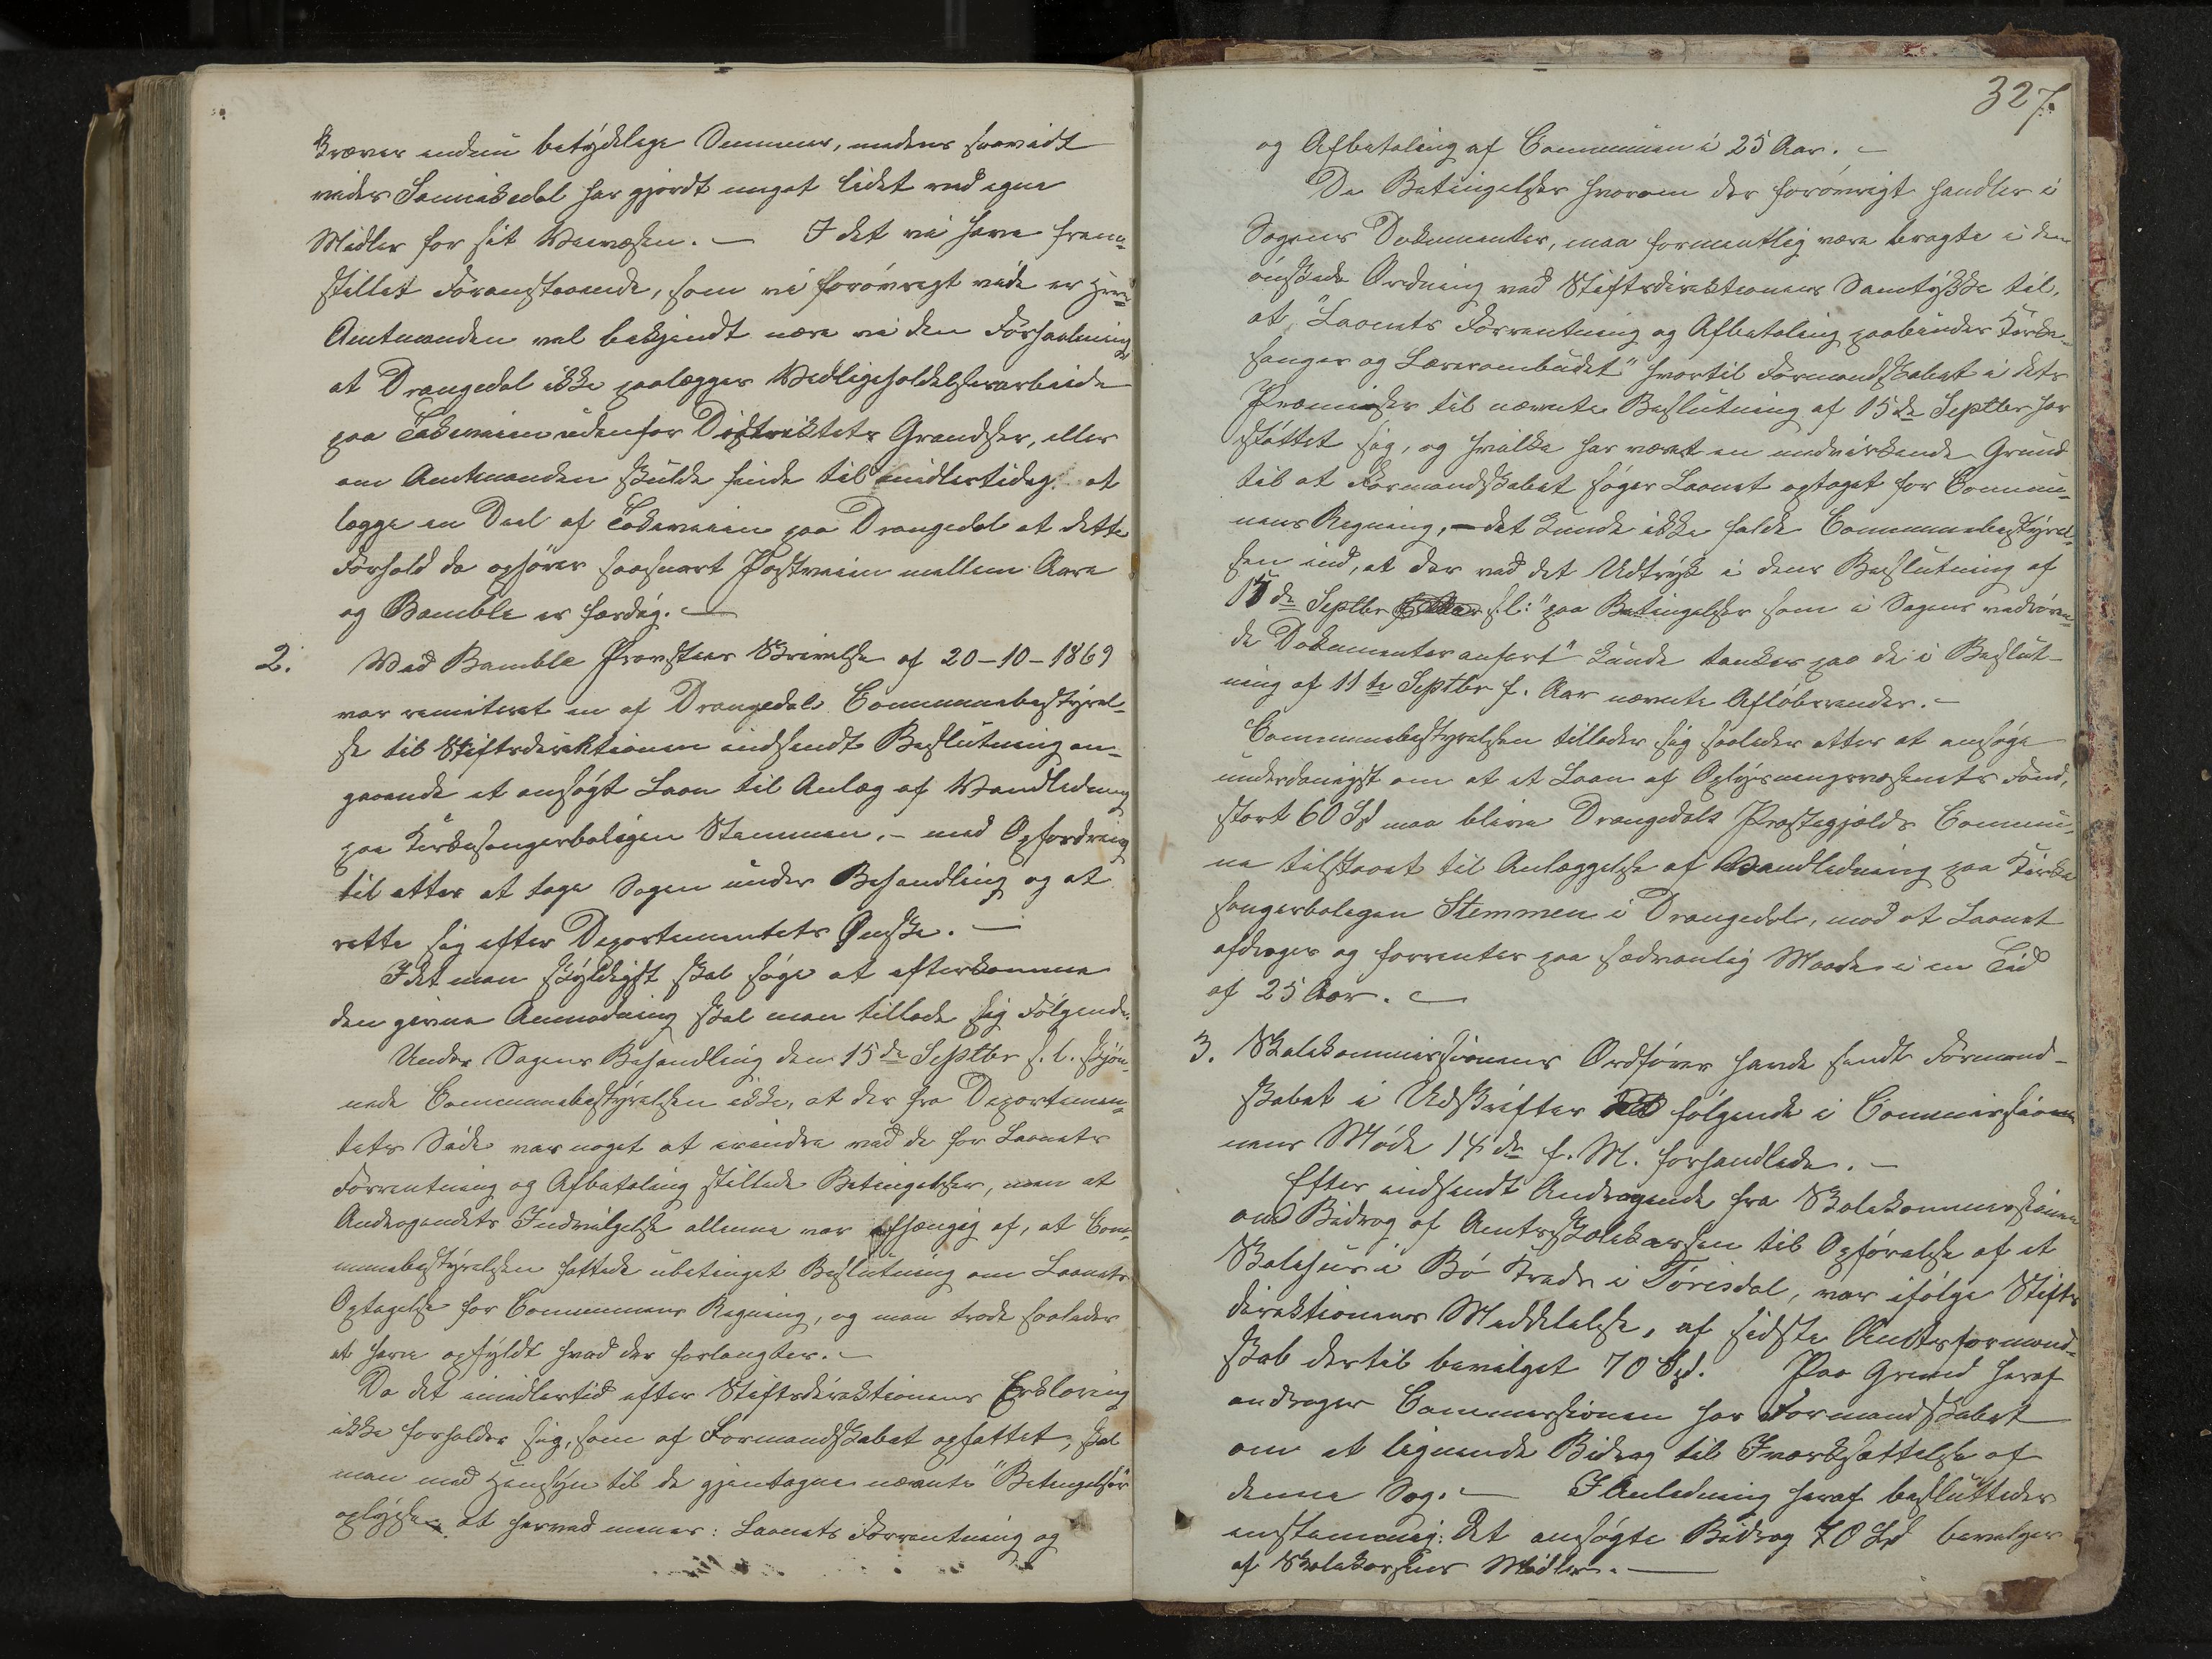 kræver endnu betydelige Summer, medens saavidt
vides Sannikedal har gjordt meget lidet med egne
Midler for sit Veivæsen. — I det vi have frem-
stillet Foranstaaende, som vi forøvrigt vide er Herr
Amtmanden vel bekjendt nære vi den Forhaabning
at Drangedal ikke paalægges Vedligeholdelsesarbeide
paa Tokeveien udenfor Distriktets Grændser, eller
om Amtmanden skulde finde til midlertidig at
lægge en Deel af Tokeveien paa Drangedal at dette
Forhold da ophører saasnart Postveien mellem Aare
og Bamble er færdig. —
2. Med Bamble Provsties Skrivelse af 20-10-1869
var remiteret en af Drangedals Communebestyrel-
se til Stiftsdirektionen indsendt Beslutning an-
gaaende et ansøgt Laan til Anlæg af Vandledning
paa Kirkesangerboligen Stemmen. – med Opfordring
til atter at tage Sagen under Behandling og at
rette sig efter Departementets Ønske. —
Idet man skyldigst skal søge at efterkomme
den givne Anmodning skal man tillade sig Følgende.
Under Sagens Behandling den 15de Septbr s. l. skjøn-
nede Communebestyrelsen ikke, at der fra Departemen-
tets Side var noget at erindre ved de for Laanets
Forrentning og Afbetaling stillede Betingelser, men at
Andragendets Indvilgelse allene var afhængig af, at Com-
munebestyrelsen fattede ubetinget Beslutning om Laanets
Optagelse for Communens Regning, og man trode saaledes
at have opfyldt hvad der forlangtes. –
Da det imidlertid efter Stiftsdirektionens Erklæring
ikke forholder sig, som af Formandskabet opfattet, skal
man med Hensyn til de gjentagne nævnte "Betingelser"
oplyse at herved menes: Laanets Forrentning og
327.
og Afbetaling af Communen i 25 Aar. –
De Betingelser hvorom der forøvrigt handles i
Sagens Dokumenter, maa formentlig være bragte i den
ønskede Ordning ved Stiftsdirektionens Samtykke til,
at "Laanets Forrentning og Afbetaling paabindes Kirke-
sanger og Lærerombudet" hvortil Formandskabet i dets
Præmisser til nævnte Beslutning af 15de Septbr har
støttet sig, og hvilke har været en medvirkende Grund
til at Formandskabet søger Laanet optaget for Commu-
nens Regning, – det kunde ikke falde Communebestyrel-
sen ind, at der ved det Udtryk i dens Beslutning af
15de Septbr s. l: "paa Betingelser som i Sagens vedrøren-
de Dokumenter anført" kunde tænkes paa de i Beslut-
ning af 11te Septbr f. Aar nævnte Afløbsrender. –
Communebestyrelsen tillader sig saaledes atter at ansøge
underdanigst om at et Laan af Oplysningsvæsenets Fond,
stort 60 Spd maa blive Drangedals Præstegjælds Commu-
ne tilstaaet til Anlæggelse af Vandledning paa Kirke
sangerboligen Stemmen i Drangedal, mod at Laanet
afdrages og forrentes paa sædvanlig Maade i en Tid
af 25 Aar. —
3. Skolekommissionens Ordfører havde sendt Formand-
skabet i Udskrifter følgende i Commissio-
nens Møde 14de f. M. forhandlede. –
Efter indsendt Andragende fra Skolekommissionen
om Bidrag af Amtsskolekassen til Opførelse af et
Skolehus i Bø Kreds i Tørisdal, var ifølge Stifts
direktionens Meddelelse, af sidste Amtsformand-
skab dertil bevilget 70 Spd. Paa Grund heraf
andrager Commissionen hos Formandskabet
om et lignende Bidrag til Iværksættelse af
denne Sag. — I Anledning heraf besluttedes
enstemmig: Det ansøgte Bidrag 70 Spd bevilges
af Skolekassens Midler. —